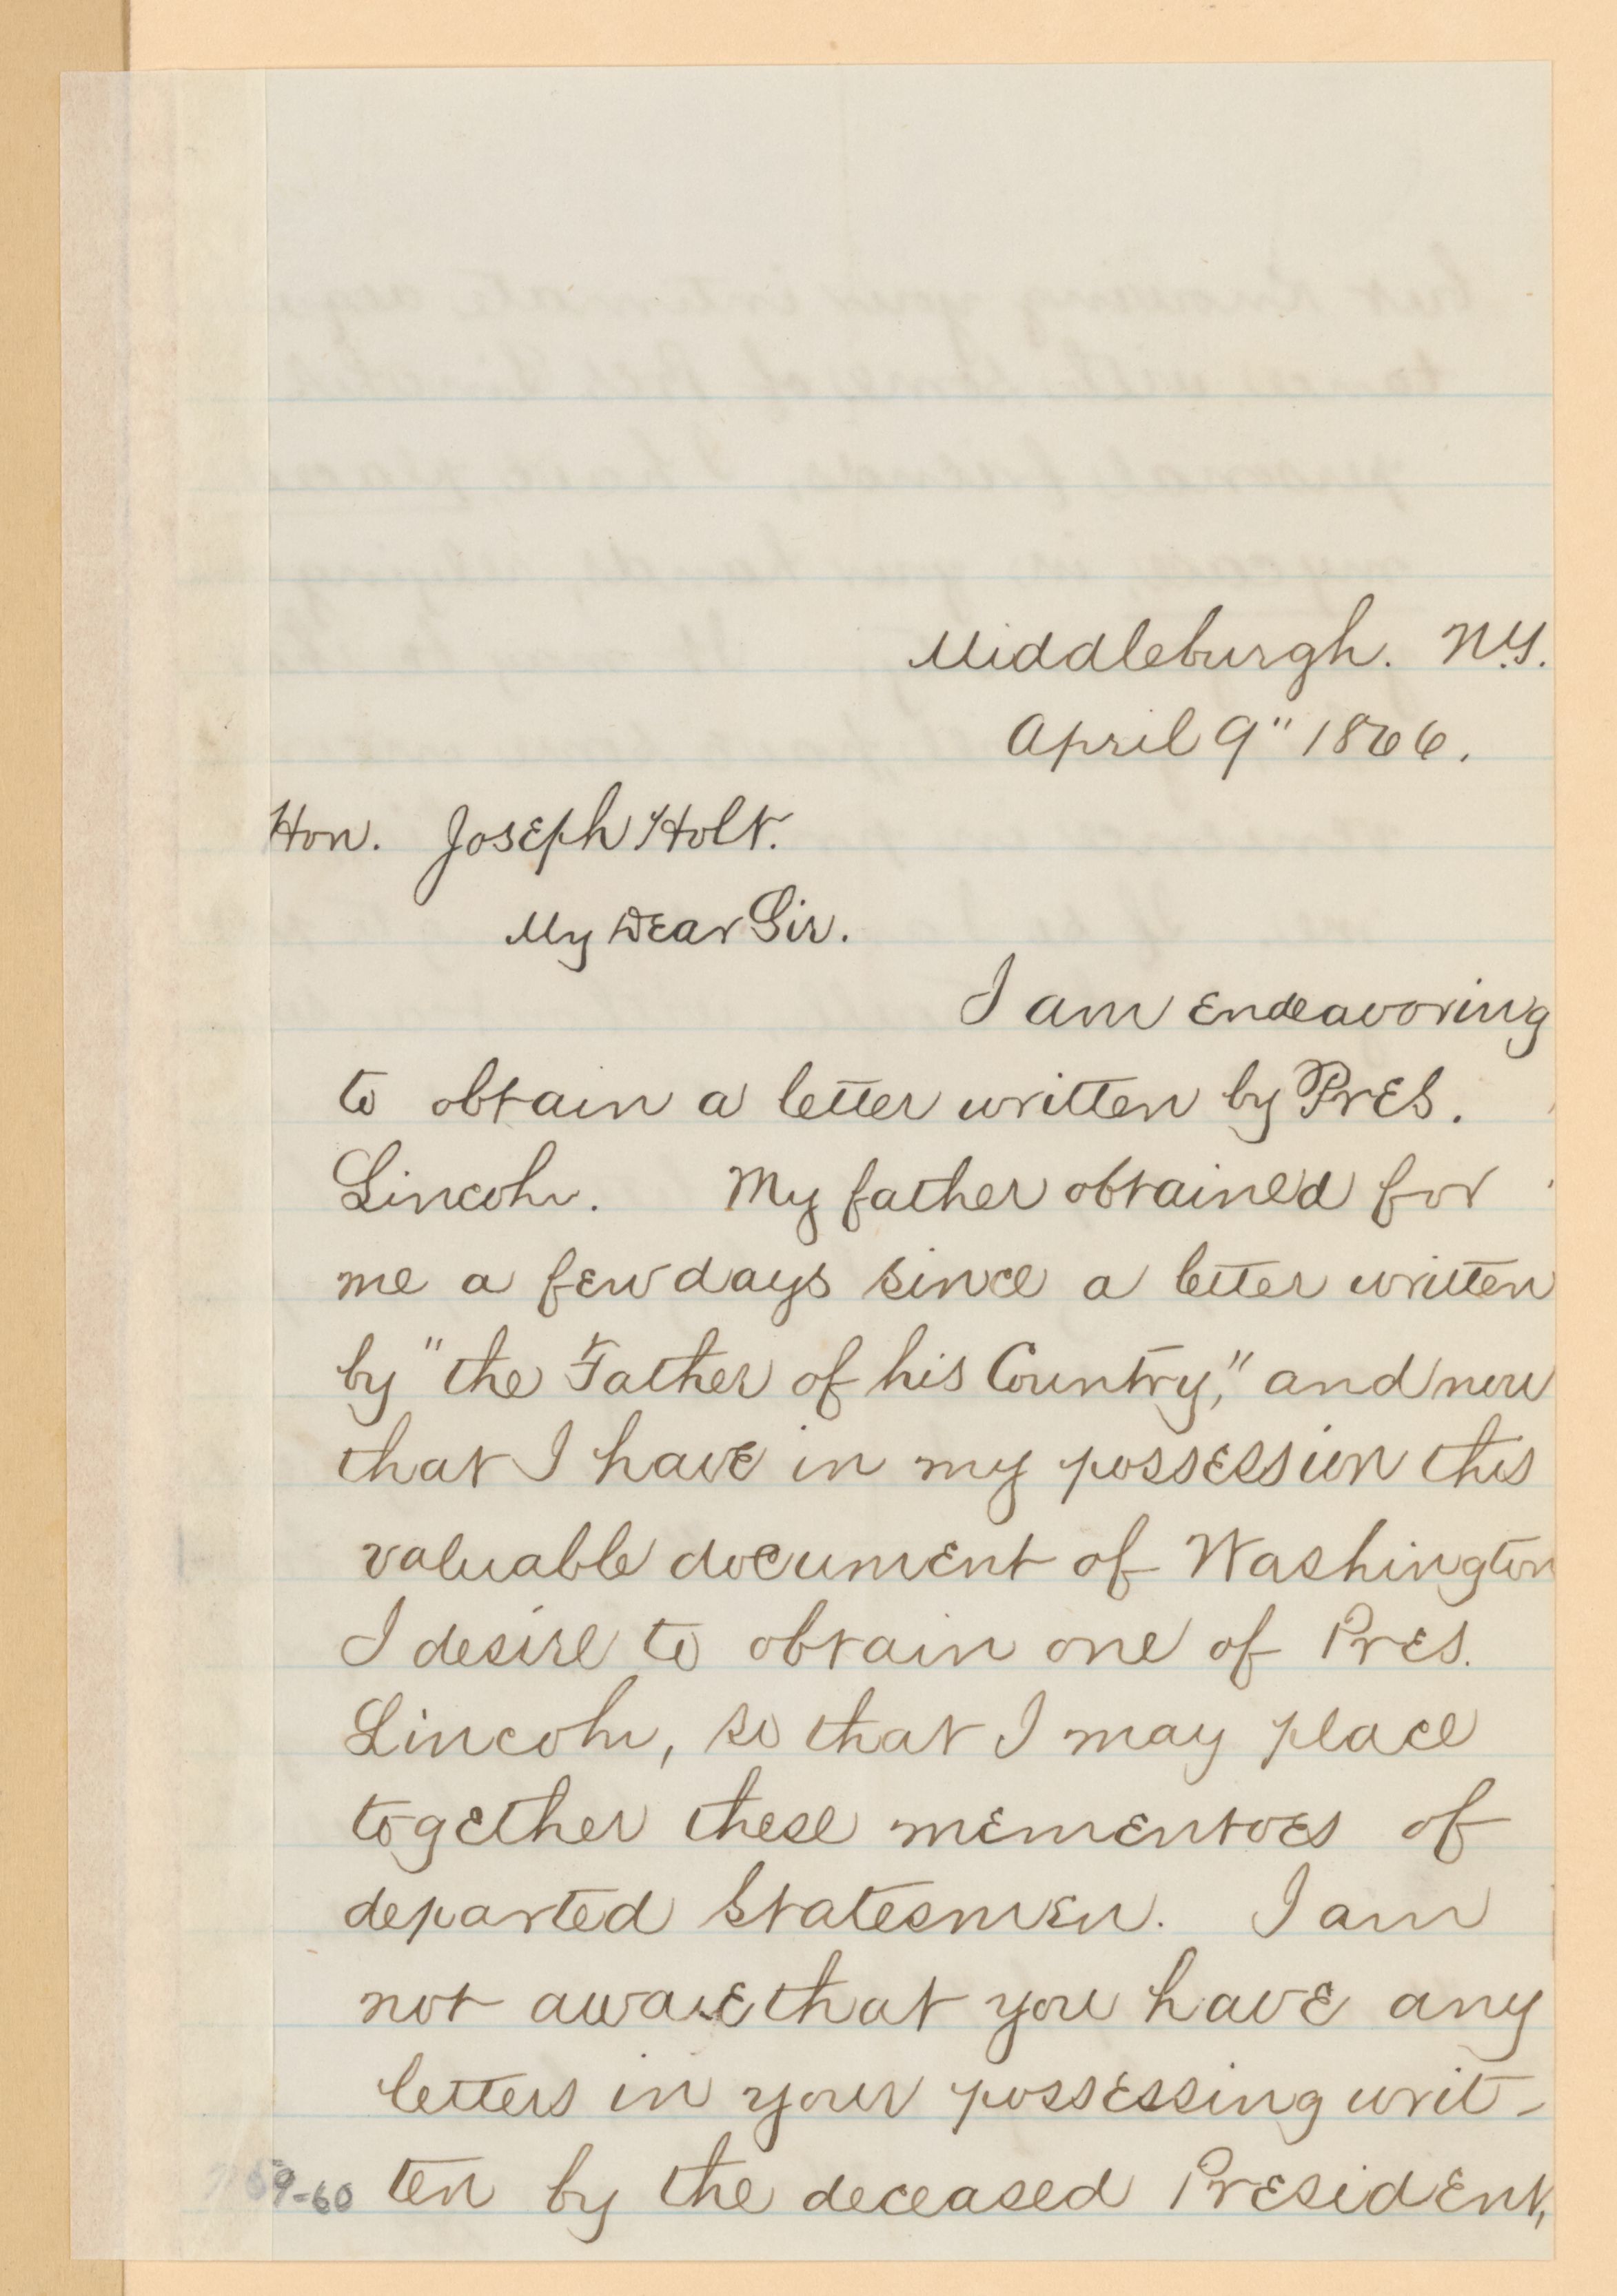 Middleburgh. N.Y.
April 9" 1866.
Hon. Joseph Holt.
My Dear Sir.
I am endeavoring
to obtain a letter written by Pres.
Lincoln. My father obtained for
me a few days since a letter written
by "the Father of his Country," and now
that I have in my possession this
valuable document of Washington
I desire to obtain one of Pres.
Lincoln, so that I may place
together these mementoes of
departed Statesmen. I am
not aware that you have any
letters in your possessing writ-
ten by the deceased President,